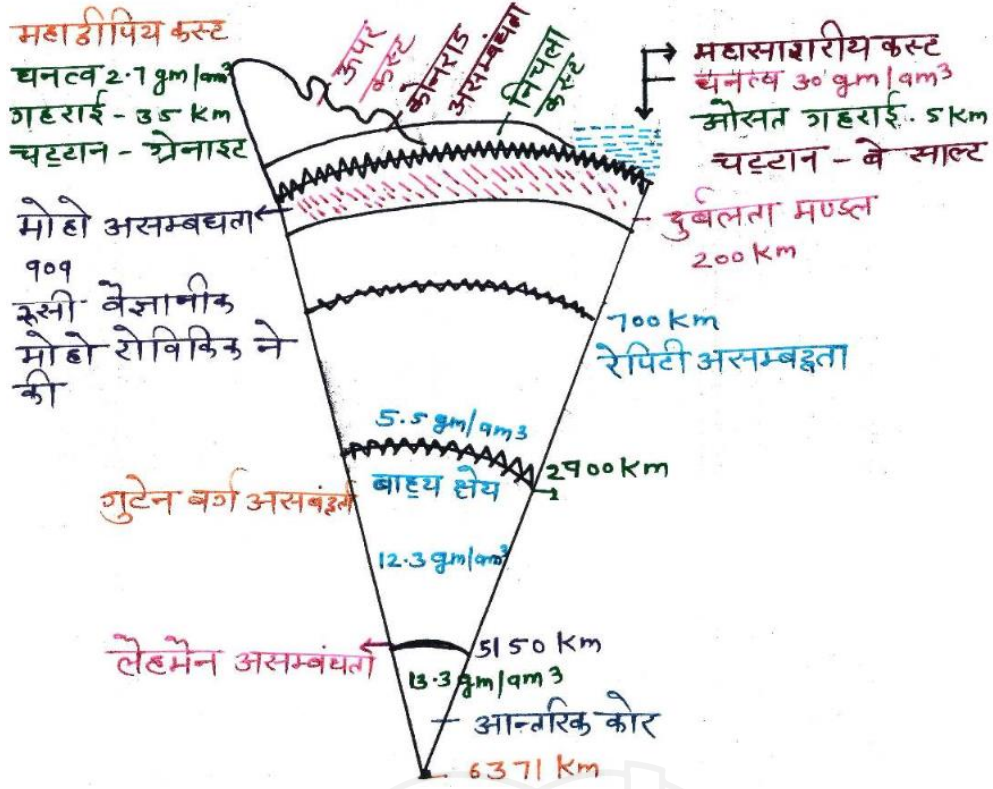 महाद्वीपिय कस्ट
घनत्व 2.7 gm/am³
गहराई - 35 km
चट्टान - ग्रेनाइट
ऊपर
कस्ट
कोनराड
असम्बंधता
निचला
कस्ट
महासागरीय कस्ट
घनत्व 30 gm/am³
औसत गहराई. 5 km
चट्टान - बे साल्ट
मोहो असम्बधता
909
रूसी वैज्ञानीक
मोहो रोविकिक ने
की
दुर्बलता मण्डल
200 km
700 km
रेपिटी असम्बद्वता
5.5 gm/am3
2900 km
बाह्य क्षेय
गुटेन बर्ग असबंद्वता
12.3 gm/am³
लेहमैन असम्बंधता
5150 km
13.3 gm/am3
आन्तरिक कोर
6371 km